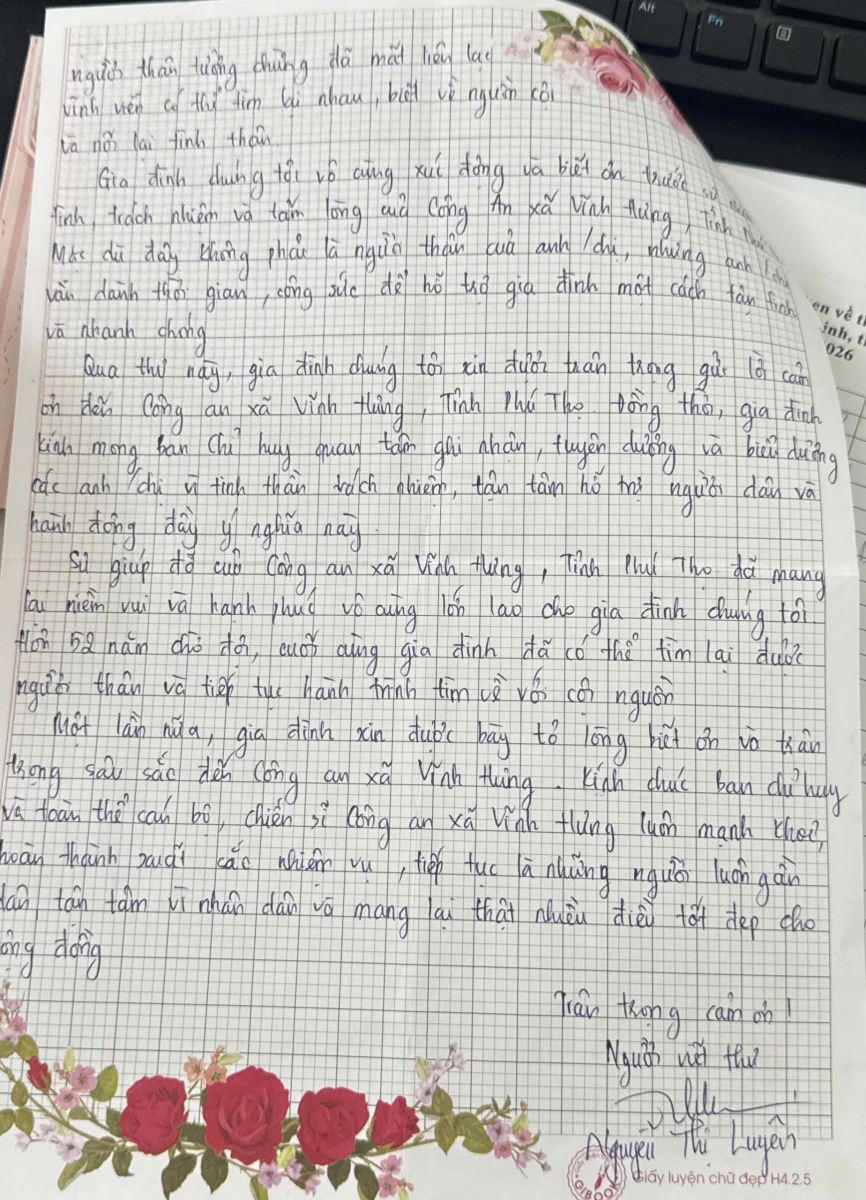 người thân tưởng chừng đã mất liên lạc
vĩnh viễn có thể tìm lại nhau, biết về nguồn cội
và nối lại tình thân.
Gia đình chúng tôi vô cùng xúc động và biết ơn trước sự
tình, trách nhiệm và tấm lòng của Công An xã Vĩnh Hưng, Tỉnh
Mặc dù đây không phải là người thân của anh/chị, nhưng anh/chị
vẫn dành thời gian, công sức để hỗ trợ gia đình một cách tận tình
và nhanh chóng
Qua thư này, gia đình chúng tôi xin được trân trọng gửi lời cảm
ơn đến Công an xã Vĩnh Hưng, Tỉnh Phú Thọ. Đồng thời, gia đình
kính mong ban Chỉ huy quan tâm ghi nhận, tuyên dương và biểu dương
các anh/chị vì tinh thần trách nhiệm, tận tâm hỗ trợ người dân và
hành động đầy ý nghĩa này.
Sự giúp đỡ của Công an xã Vĩnh Hưng, Tỉnh Phú Thọ đã mang
lại niềm vui và hạnh phúc vô cùng lớn lao cho gia đình chúng tôi.
Hơn 52 năm chờ đợi, cuối cùng gia đình đã có thể tìm lại được
người thân và tiếp tục hành trình tìm về với cội nguồn
Một lần nữa, gia đình xin được bày tỏ lòng biết ơn và trân
trọng sâu sắc đến Công an xã Vĩnh Hưng. Kính chúc ban chỉ huy
và toàn thể cán bộ, chiến sĩ Công an xã Vĩnh Hưng luôn mạnh khoẻ,
hoàn thành xuất các nhiệm vụ, tiếp tục là những người luôn gần
dân, tận tâm vì nhân dân và mang lại thật nhiều điều tốt đẹp cho
ộng đồng
Trân trọng cảm ơn!
Người viết thư
Nguyễn Thị Luyên
Giấy luyện chữ đẹp H4.2.5
Alt
Fn
en về t
ỉnh, t
026